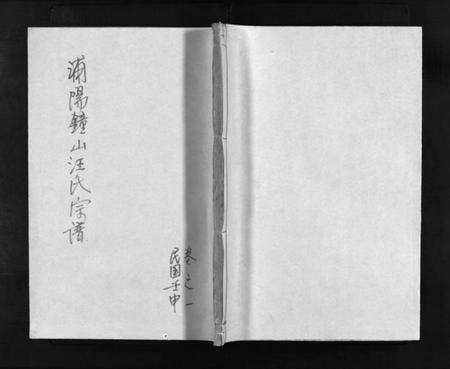 浦陽鐘山汪氏宗谱
卷之一
民国壬申